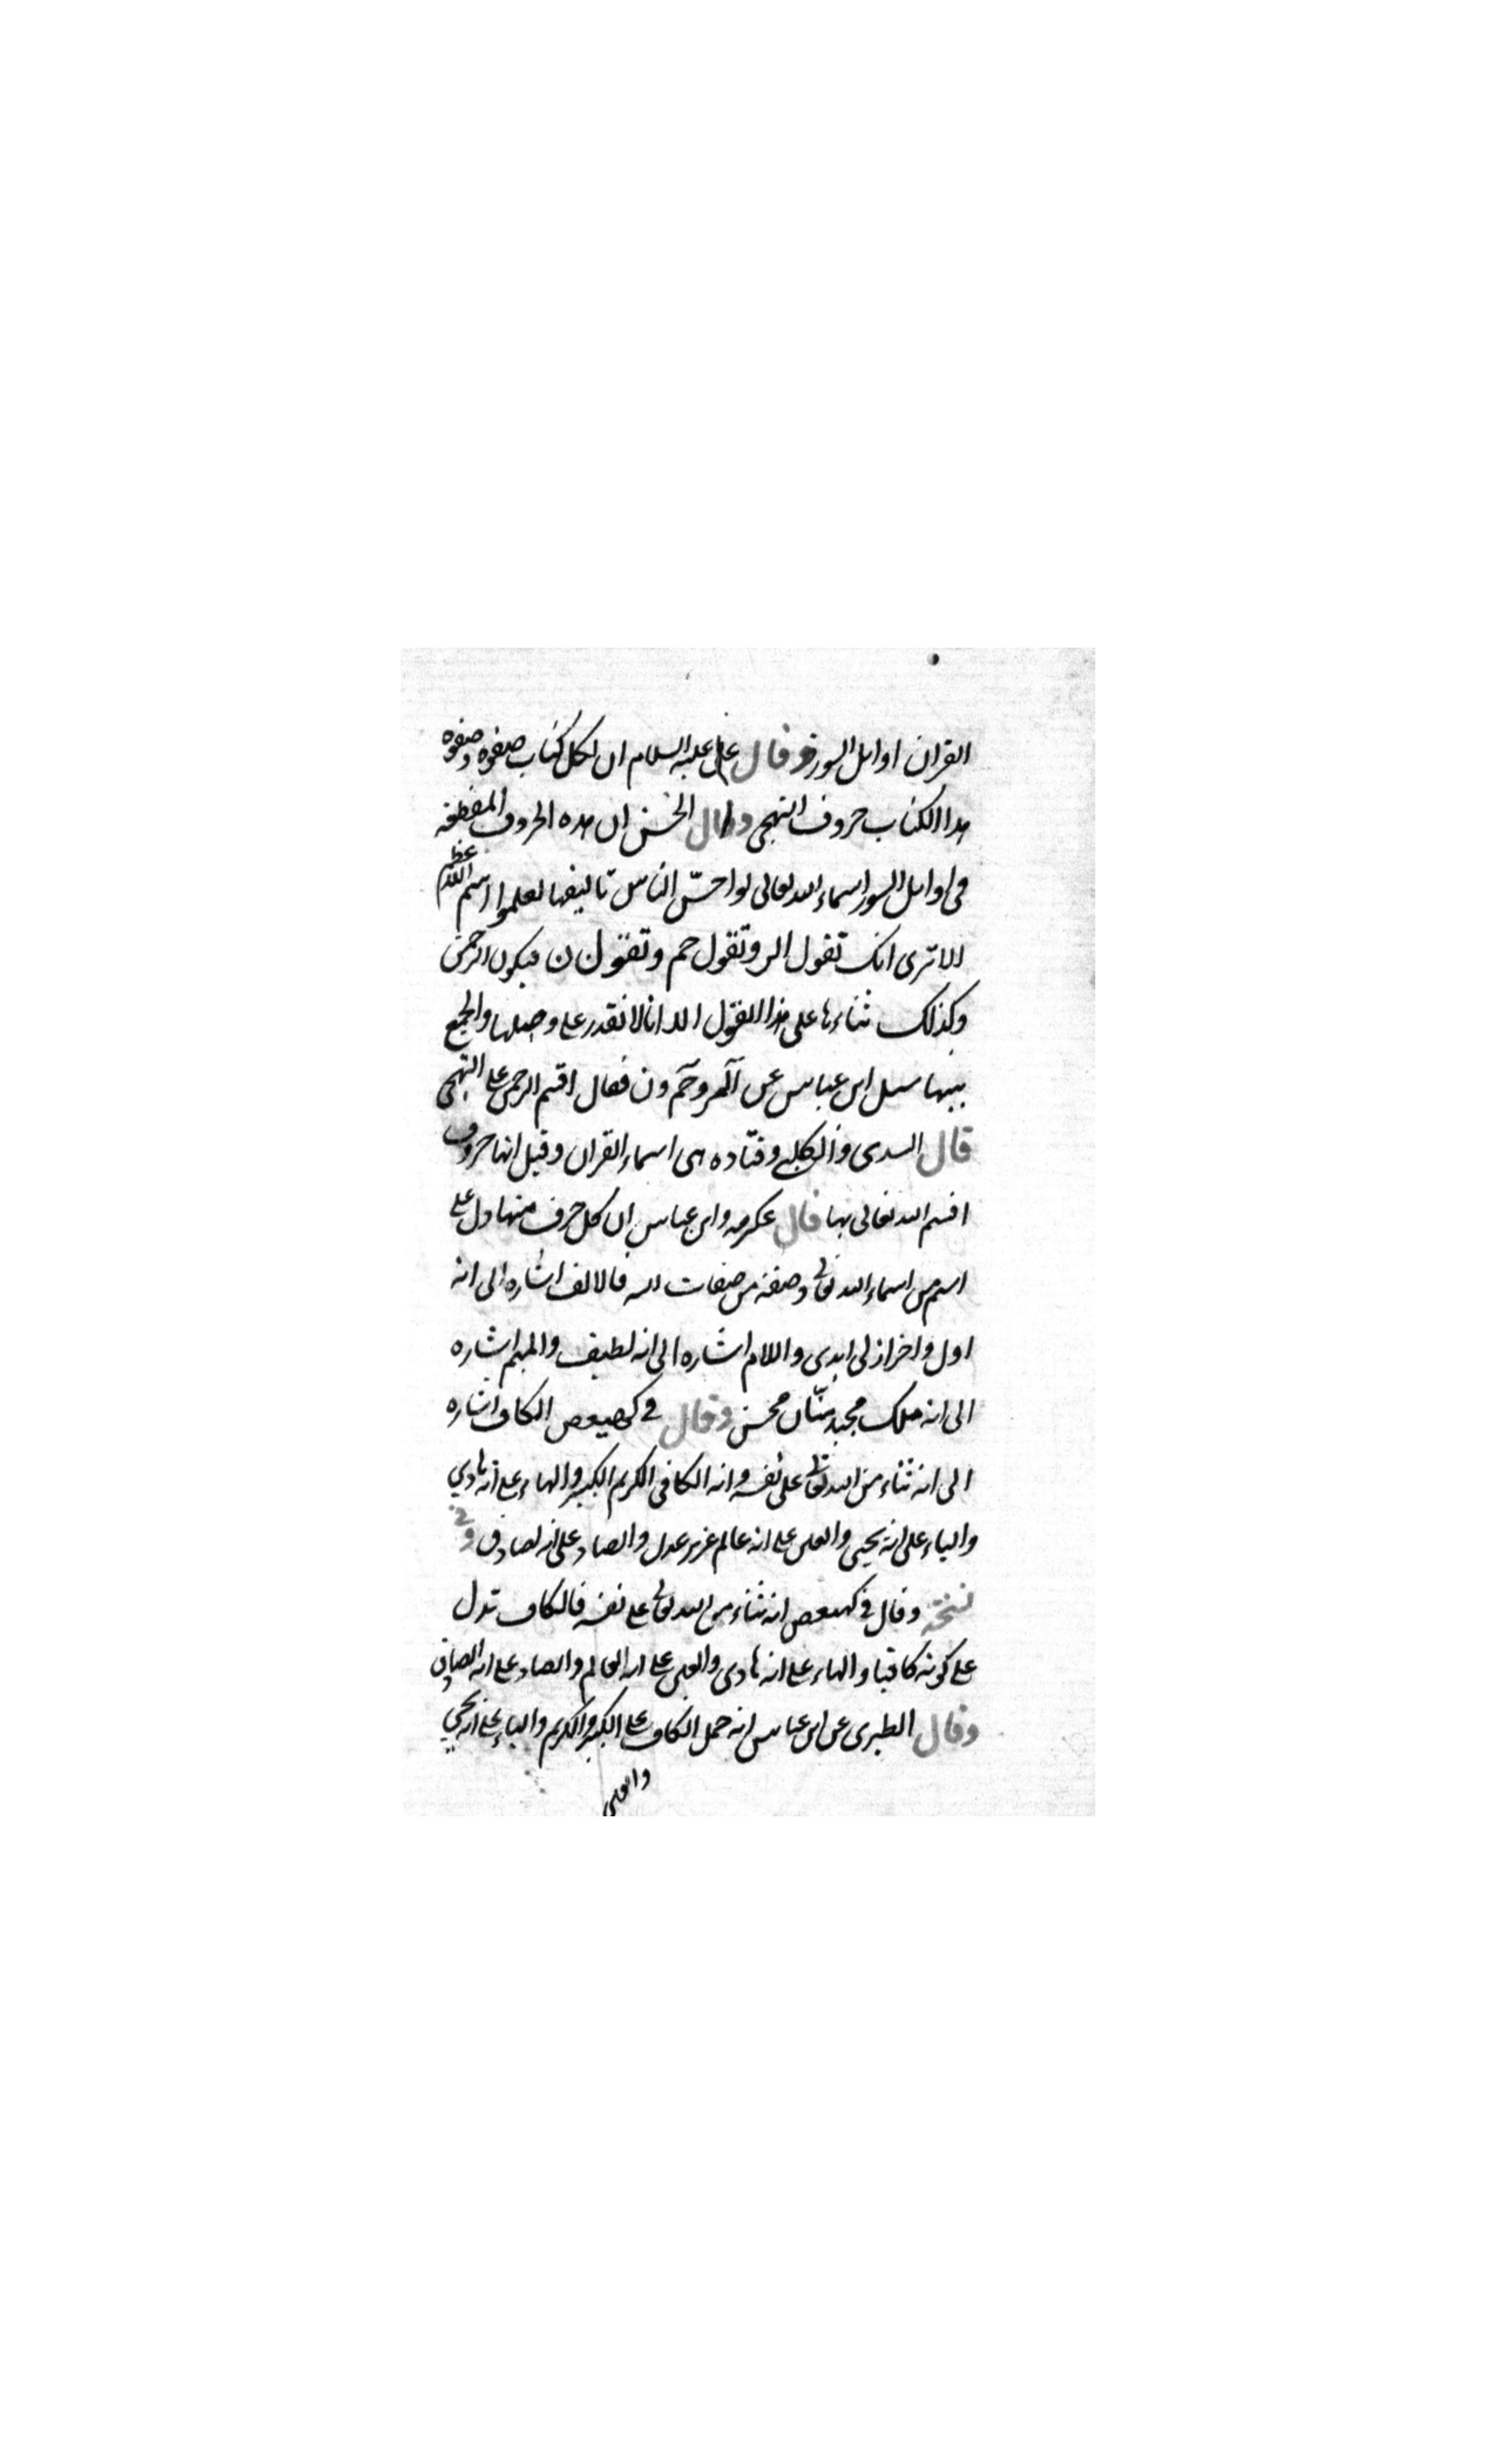 القران اوايل السور وقال على عليه السلام ان لكل كتاب صفوه وصفوه
هذا الكتاب حروف التهجى وقال الحسن ان هذه الحروف المقطعه
فى اوايل السور اسماء الله تعالى لو احسّ الناس تاليفها لعلموا اسم الله
الا ترى انك تقول الر وتقول حم وتقول ن فيكون الرحمن
وكذلك ثناءها على هذا القول الا انا لا نقدر على وصلها والجمع
بينها سيل ابن عباس عن آلمر وحم ون فقال اقسم الرحمن على التهجى
قال السدى والكلبى وقتاده هى اسماء القران وقيل انها حروف
اقسم الله تعالى بها قال عكرمه وابن عباس ان كل حرف منها دل على
اسم من اسماء الله تعالى وصفة من صفات الله فالالف اشاره الى انه
اول واخر ازلى ابدى واللام اشاره الى انه لطيف والميم اشاره
الى انه ملك مجيد منّان محسن وقال فى كهيعص الكاف اشاره
الى انه ثناء من الله تعالى على نفسه وانه الكافى الكريم الكبير والهاء على انه هادي
والياء على انه يحيى والعين على انه عالم عزيز عدل والصاد على انه لصادق وفى
نسخة وقال فى كهيعص انه ثناء من الله تعالى على نفسه فالكاف تدل
على كونه كافيا والهاء على انه هادى والعين على انه العالم والصاد على انه الصادق
وقال الطبرى عن ابن عباس انه حمل الكاف على الكبير والكريم والياء على انه يحيي
والعين